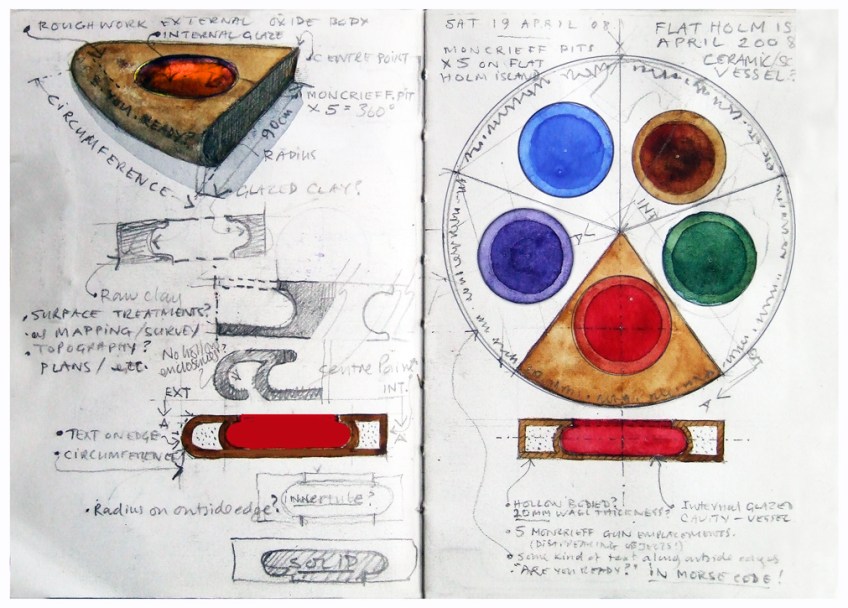 ROUGHWORK EXTERNAL OXIDE BODY
INTERNAL GLAZE
CENTRE POINT
MONCRIEFF PIT
X 5 = 360°
90CM
RADIUS
CIRCUMFERENCE
ARE YOU READY?
GLAZED CLAY?
Raw clay
SURFACE TREATMENTS?
MAPPING/SURVEY
TOPOGRAPHY?
PLANS / etc.
No hollow
enclosures?
centre Point
EXT
INT.
A
A
TEXT ON EDGE
CIRCUMFERENCE
Radius on outside edge?
INNERTUBE?
SOLID
SAT 19 APRIL 08
FLAT HOLM IS
APRIL 2008
CERAMIC/SC
VESSEL?
MONCRIEFF PITS
X 5 ON FLAT
HOLM ISLAND
INT
A
A
HOLLOW BODIED?
20MM WALL THICKNESS?
INTERNAL GLAZED
CAVITY - VESSEL
5 MONCRIEFF GUN EMPLACEMENTS.
(DISAPPEARING OBJECTS!)
Some kind of text along outside edges
"ARE YOU READY?" IN MORSE CODE!